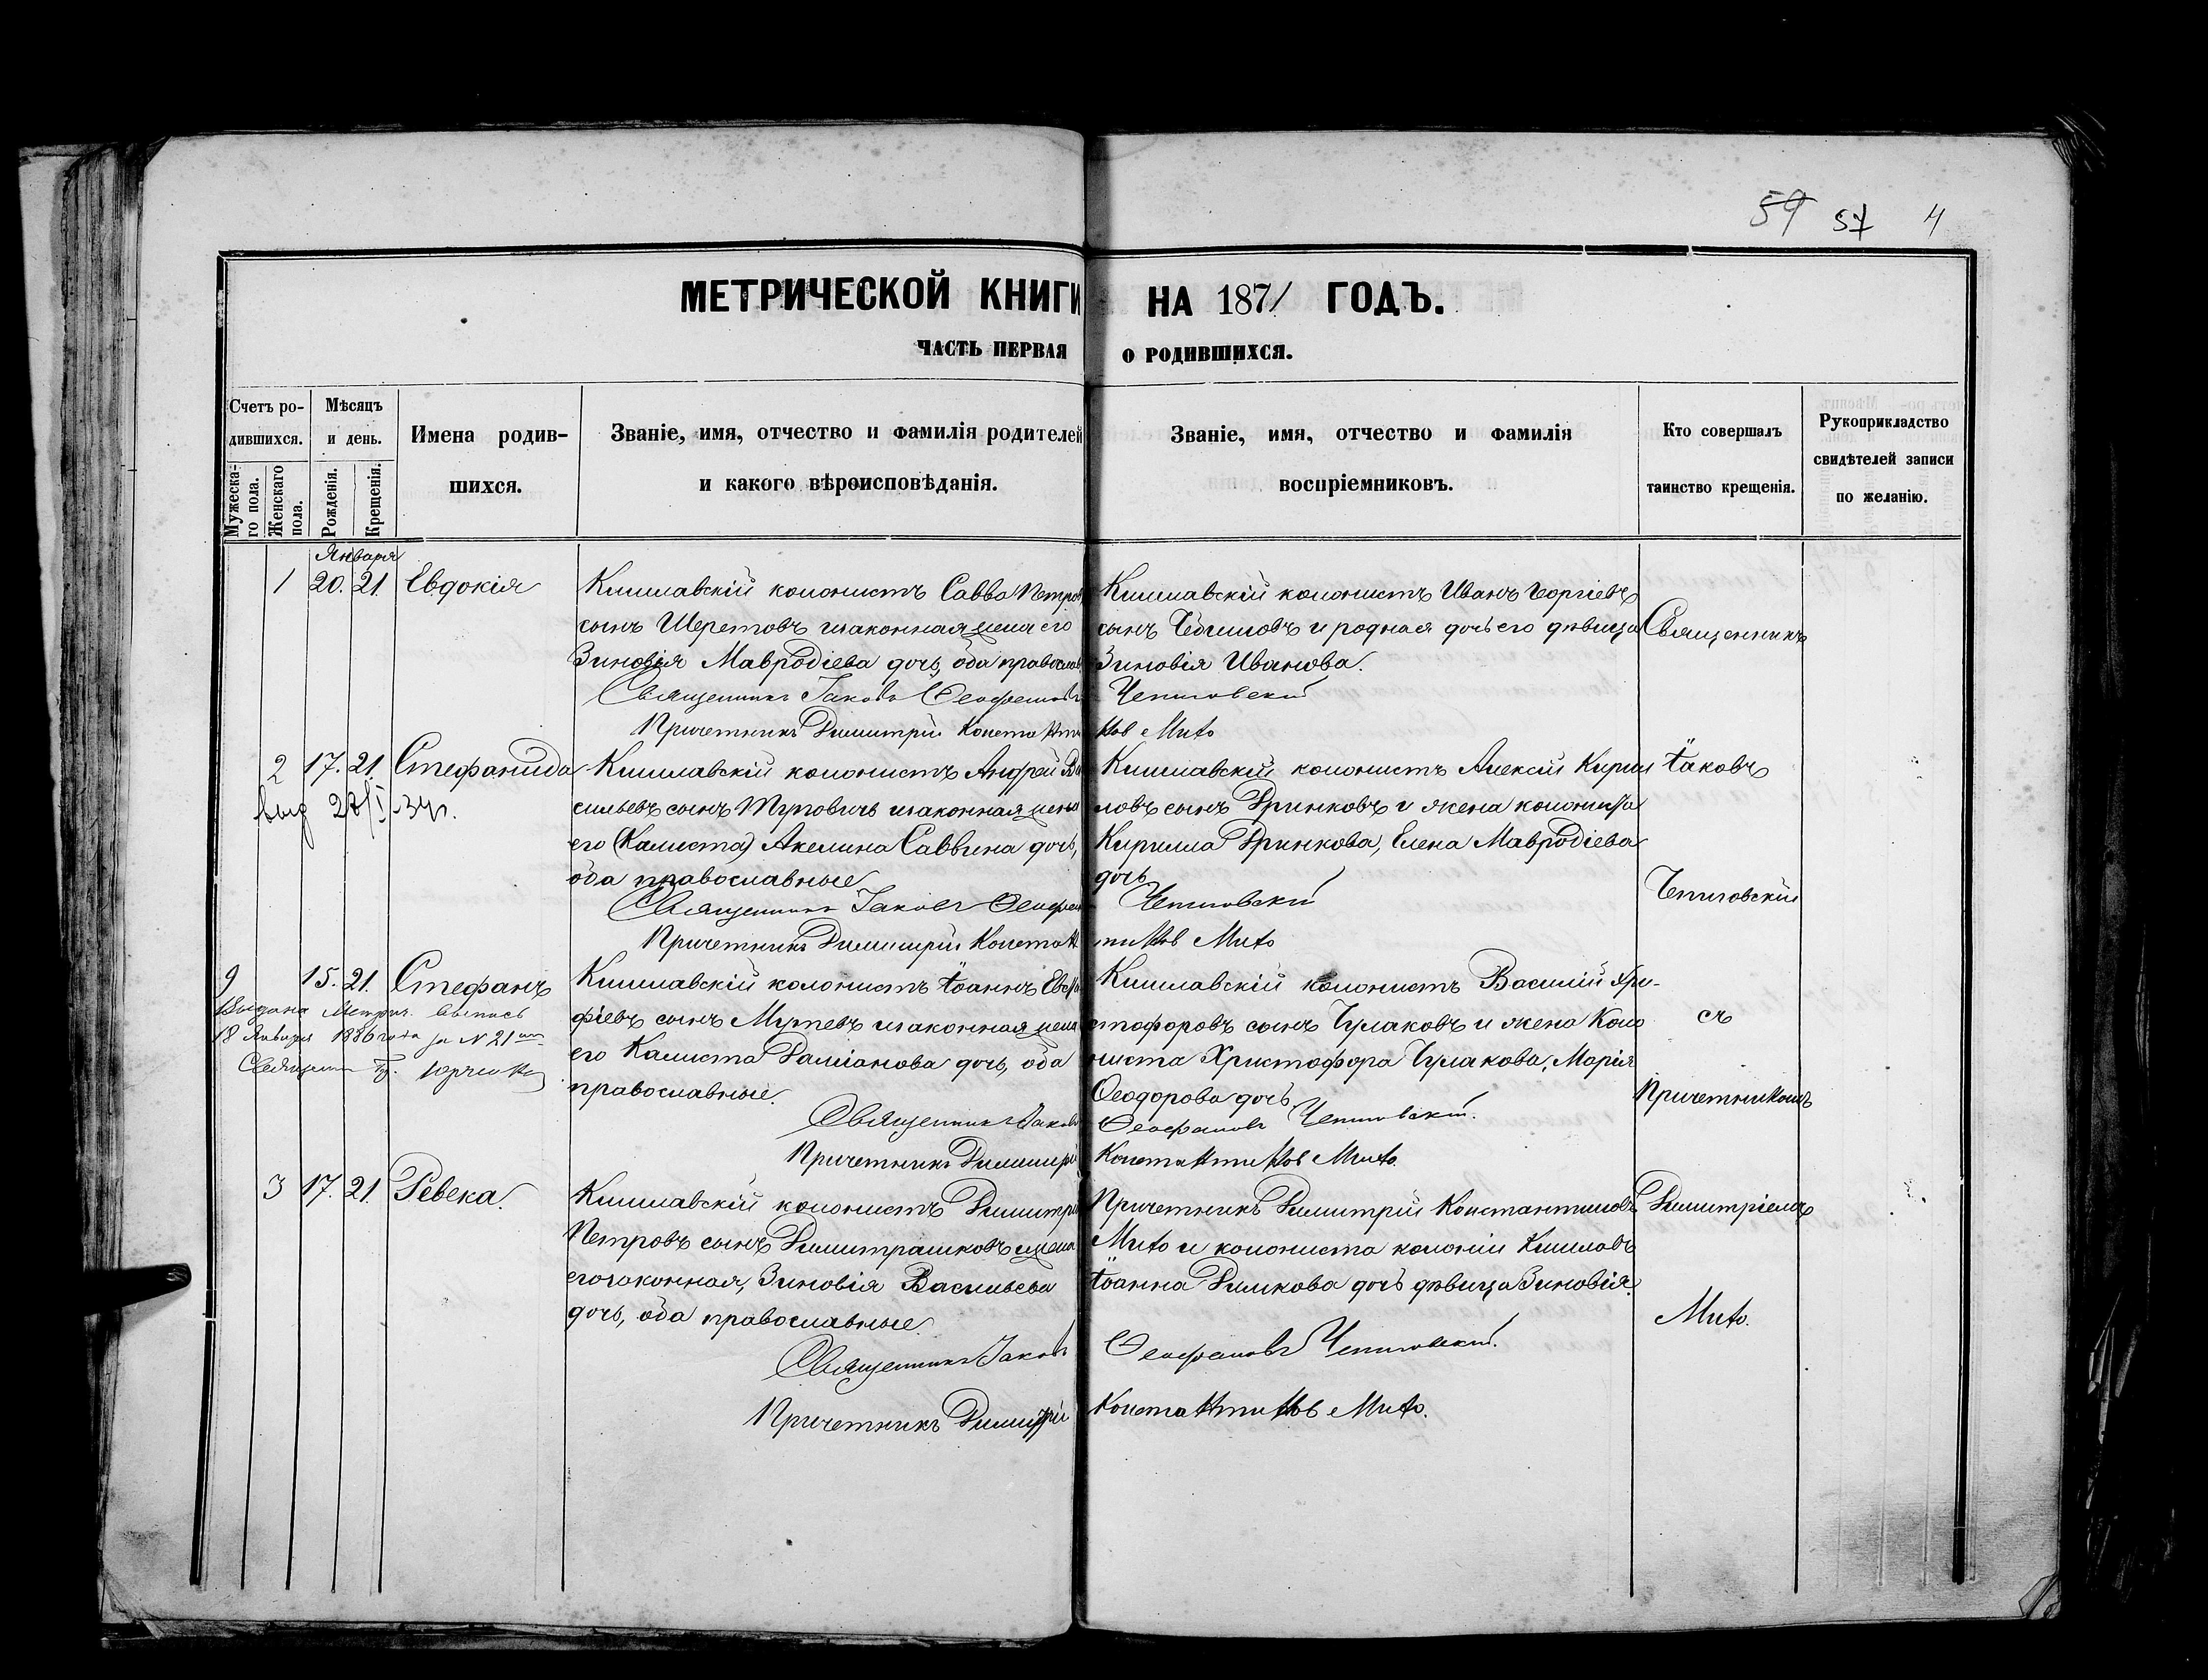 59 57 4
МЕТРИЧЕСКОЙ КНИГИ НА 1871 ГОДЪ.
ЧАСТЬ ПЕРВАЯ О РОДИВШИХСЯ.
Счетъ ро-
дившихся.
Мужеска-
го пола.
Женскаго
пола.
Мѣсяцъ
и день.
Рожденія.
Крещенія.
Имена родив-
шихся.
Званіе, имя, отчество и фамилія родителей
и какого вѣроисповѣданія.
Званіе, имя, отчество и фамилія
воспріемниковъ.
Кто совершалъ
таинство крещенія.
Рукоприкладство
свидѣтелей записи
по желанію.
Января
1 20. 21. Евдокія
Кишлавскій колонистъ Савва Петров
сынъ Шеретовъ и законная жена его
Зиновія Мавродіева дочь, оба православ
Кишлавскій колонистъ Иванъ Георгіевъ
сынъ и родная дочь его дѣвица
Зиновія Иванова.
Священникъ Іаковъ Феофановъ Чепиговскій
Причетникъ Димитрій Константинов Мито
2 17. 21. Стефанида
выд 27/I-34г.
Кишлавскій колонистъ Андрей Ва
сильевъ сынъ и законная жена
его (Калиста) Акелина Саввина дочь,
оба православные
Кишлавскій колонистъ Алексій Кирил
ловъ сынъ Дринковъ и жена колониста
Кирилла Дринкова, Елена Мавродіева
дочь
Священникъ Іаковъ Феофанов Чепиговскій
Причетникъ Димитрій Константинов Мито
9 15. 21. Стефанъ
Выдана Метрич. выпись
18 Января 1886 года за № 21
Священник
Кишлавскій колонистъ Іоаннъ Евста
фіевъ сынъ Муртевъ и законная жена
его Калиста Даміанова дочь, оба
православные.
Кишлавскій колонистъ Василій Хри-
стофоровъ сынъ Чулаковъ и жена Коло
ниста Христофора Чулакова, Марія
Феодорова дочь
Священникъ Іаковъ Феофановъ Чепиговскій.
Причетникъ Димитрій Константинов Мито.
3 17. 21. Ревека.
Кишлавскій колонистъ Димитрій
Петровъ сынъ Димитрашковъ и жена
его законная, Зиновія Васильева
дочь, оба православные.
Причетникъ Димитрій Константиновъ
Мито и колониста колоніи Кишлавъ
Іоанна Димкова дочь дѣвица Зиновія.
Священникъ Іаковъ Феофановъ Чепиговскій.
Причетникъ Димитрій Константинов Мито.
Священникъ
Іаковъ
Чепиговскій
съ
Причетникомъ
Димитріемъ
Мито.